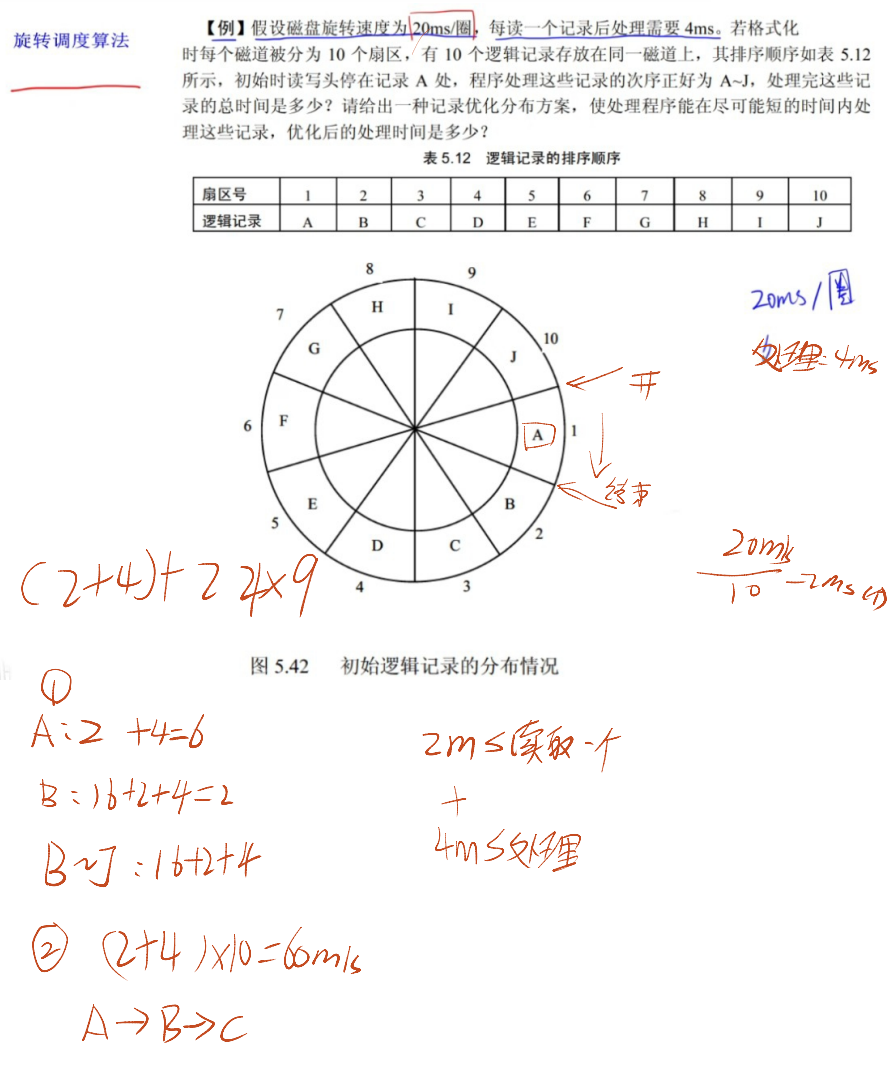 旋转调度算法
【例】假设磁盘旋转速度为 20ms/圈，每读一个记录后处理需要 4ms。若格式化
时每个磁道被分为 10 个扇区，有 10 个逻辑记录存放在同一磁道上，其排序顺序如表 5.12
所示，初始时读写头停在记录 A 处，程序处理这些记录的次序正好为 A~J，处理完这些记
录的总时间是多少？请给出一种记录优化分布方案，使处理程序能在尽可能短的时间内处
理这些记录，优化后的处理时间是多少？
表 5.12 逻辑记录的排序顺序
扇区号 1 2 3 4 5 6 7 8 9 10
逻辑记录 A B C D E F G H I J
8 9
H I
7 10
G J
20ms/圈
处理：4ms
开
6 F A 1
结束
E B
5 2
D C
4 3
(2+4)+22×9
20ms
10
图 5.42 初始逻辑记录的分布情况
①
A：2 +4=6
B：16+2+4=2
B~J：16+2+4
2ms读取一个
+
4ms处理
② (2+4)×10=60m/s
A→B→C